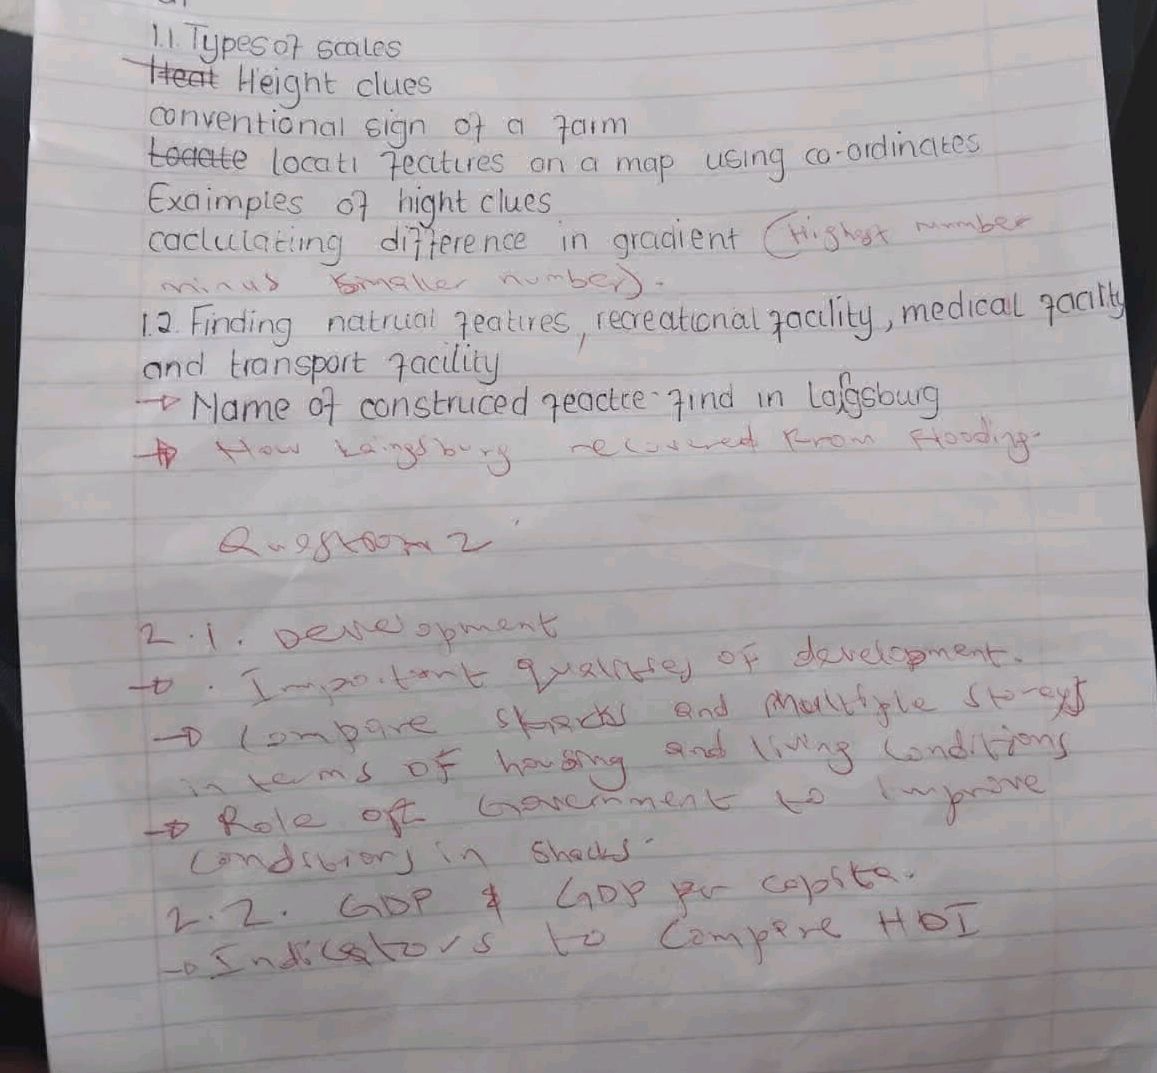 1.1. Types of scales
Heat Height clues
conventional sign of a farm
Locate locati features on a map using co-ordinates
Exaimples of hight clues
caclulatiing difference in gradient (Highest number
minus smaller number).
1.2. Finding natrual featires, recreational facility, medical facility
and transport facility
→ Name of construced feactre find in Laigsburg
→ How Laingsburg recovered from Flooding.
Question 2
2.1. Development
→ . Important qualities of development.
→ Compare shacks and multiple storeys
in terms of housing and living conditions
→ Role of Government to improve
conditions in shacks.
2.2. GDP & GDP per capita.
→ Indicators to compare HDI